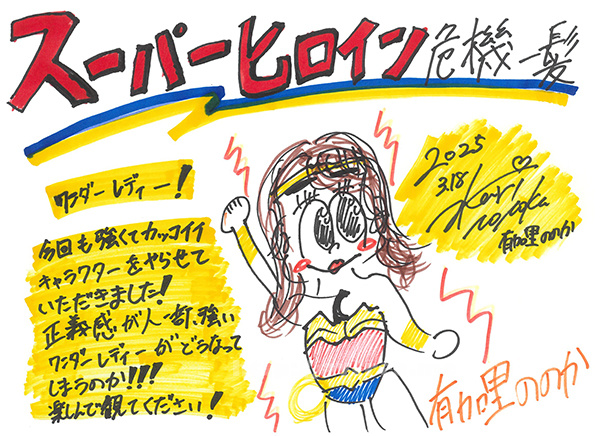 スーパーヒロイン危機一髪
ワンダーレディー!
今回も強くてカッコイイ
キャラクターをやらせて
いただきました!
正義感が人一倍、強い
ワンダーレディーがどうなって
しまうのか!!!
楽しんで観てください!
2025
3.18
有加里ののか
有加里ののか